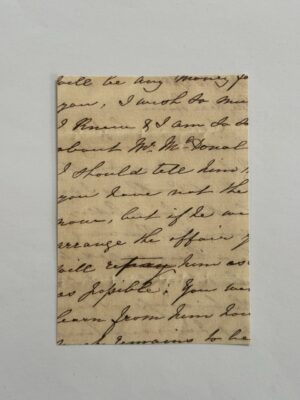 will be any money fo
you, I wish so mu
I knew & I am so a
about Mr. McDonal
I should tell him
you have not the
now, but if he wo
arrange the affair
will repay him as
as possible. You wo
learn from him how
remains to be